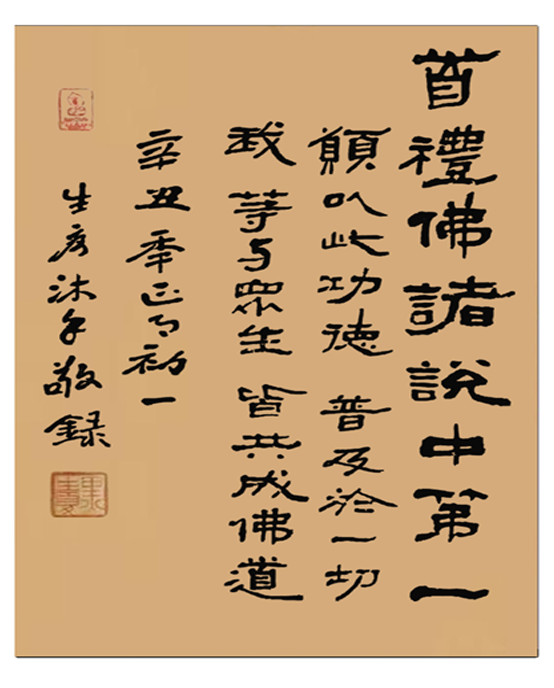 首禮佛諸說中第一
願以此功德 普及於一切
我等与眾生 皆共成佛道
辛丑年正月初一
生沐手敬録